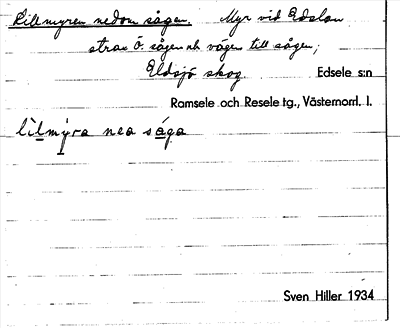 Lillmyren nedom sågen. Myr vid Edslan
strax Ö. sågen nh vägen till sågen,
Eldsjö skog Edsele s:n
Ramsele och Resele tg., Västernorrl. l.
lìlmỳra nea sága
Sven Hiller 1934